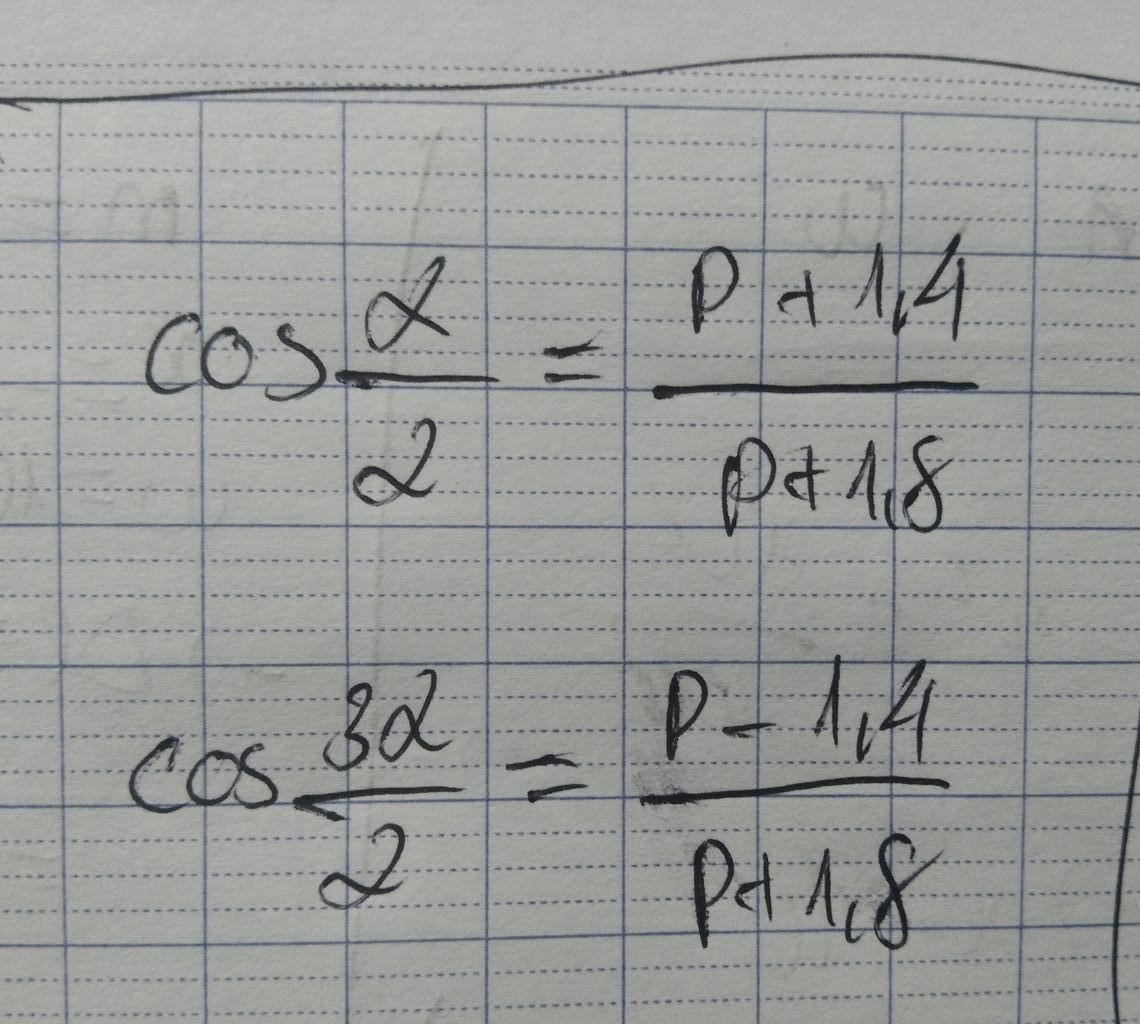 cos α/2 = P + 1,4 / p + 1,8
cos 3α/2 = P - 1,4 / P + 1,8